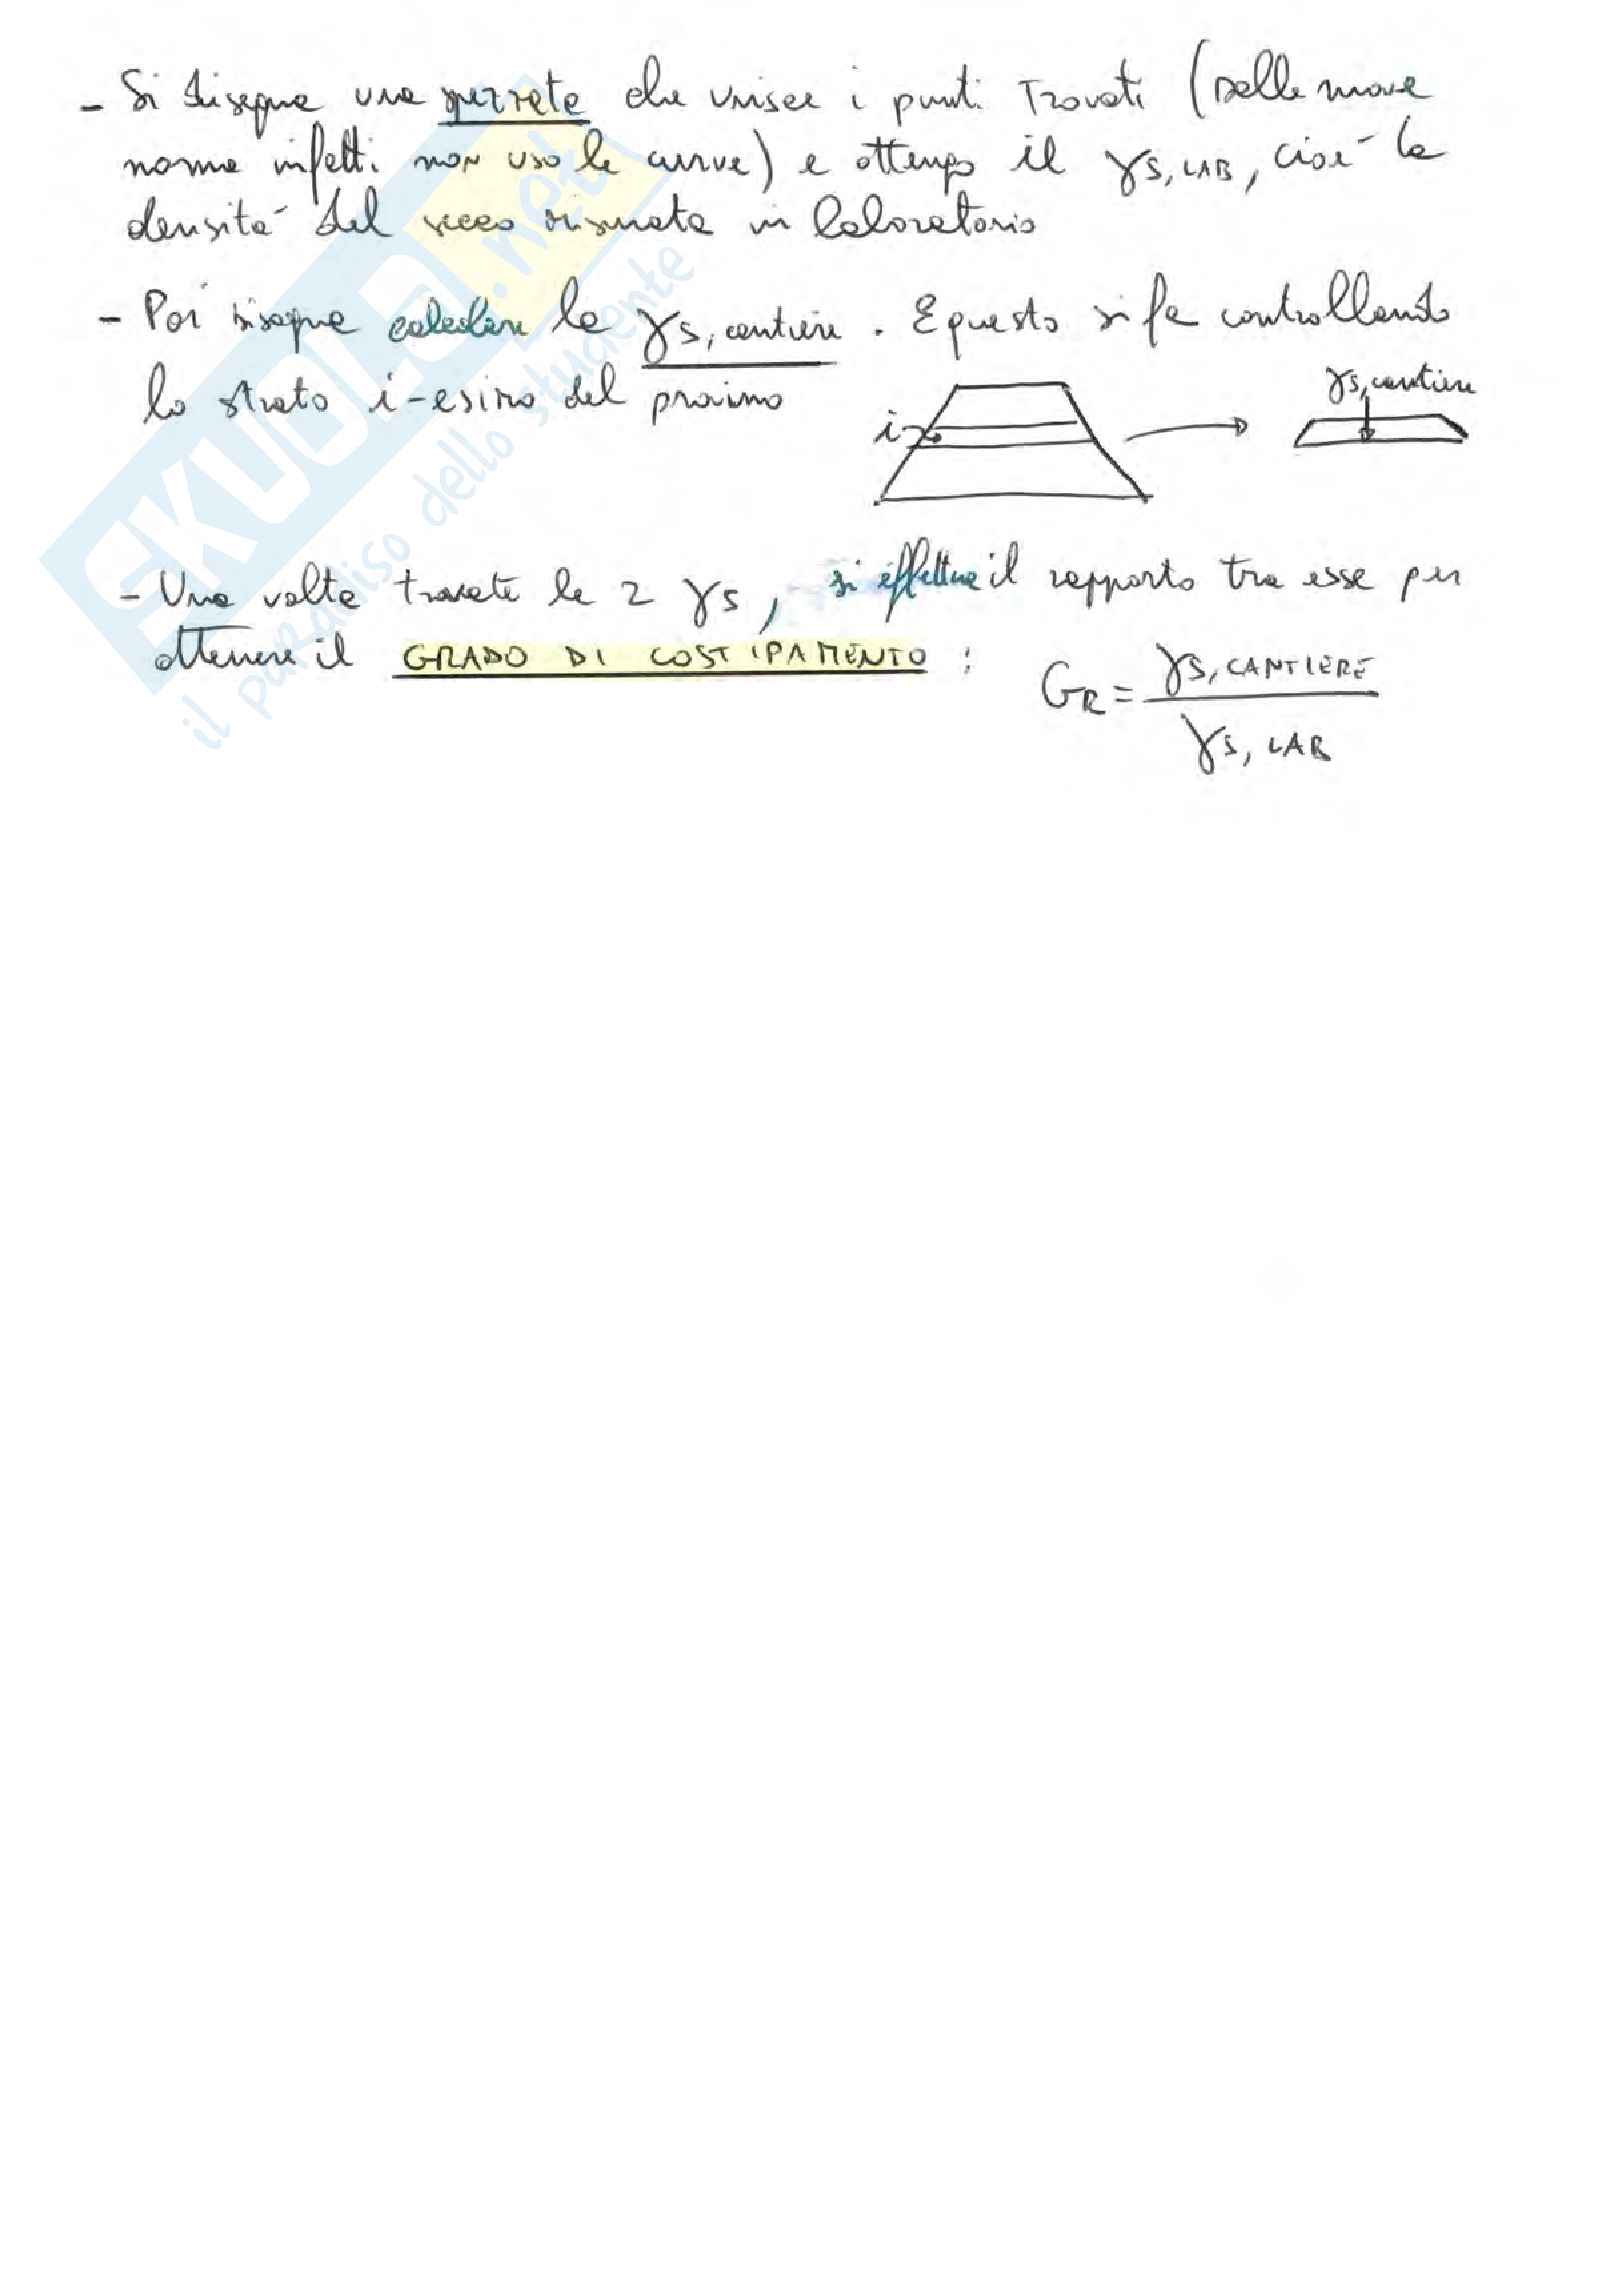 - Si disegna una spezzata che unisce i punti trovati (Dalle nuove
norme infatti non uso le curve) e ottengo il γs, LAB, cioè la
densità del secco misurata in laboratorio
- Poi bisogna calcolare la γs, cantiere. E questo si fa controllando
lo strato i-esimo del prossimo
γs, cantiere
i
- Una volta trovate le 2 γs, si effettua il rapporto tra esse per
ottenere il GRADO DI COSTIPAMENTO : GR = γs, CANTIERE
γs, LAB
SKUOLA.net
il paradiso dello studente